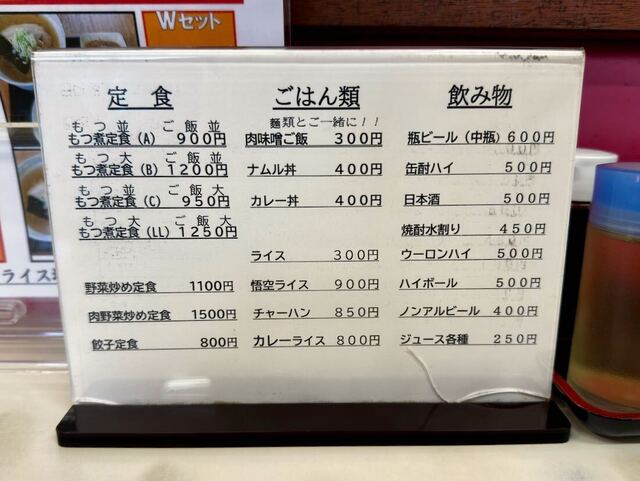 Wセット
定 食
もつ並 ご飯並
もつ煮定食(A) 900円
もつ大 ご飯並
もつ煮定食(B) 1200円
もつ並 ご飯大
もつ煮定食(C) 950円
もつ大 ご飯大
もつ煮定食(LL) 1250円
野菜炒め定食 1100円
肉野菜炒め定食 1500円
餃子定食 800円
ごはん類
麺類とご一緒に!!
肉味噌ご飯 300円
ナムル丼 400円
カレー丼 400円
ライス 300円
悟空ライス 900円
チャーハン 850円
カレーライス 800円
飲み物
瓶ビール(中瓶) 600円
缶酎ハイ 500円
日本酒 500円
焼酎水割り 450円
ウーロンハイ 500円
ハイボール 500円
ノンアルビール 400円
ジュース各種 250円
ライス